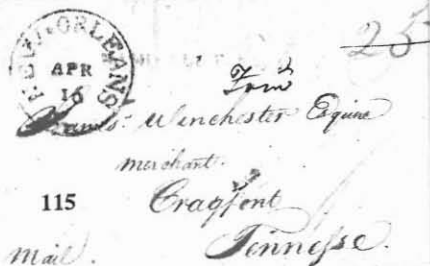 NEW-ORLEANS
APR
16
25
Winchester Esquire
merchant
115
Cragfont
Tennessee.
Mail.